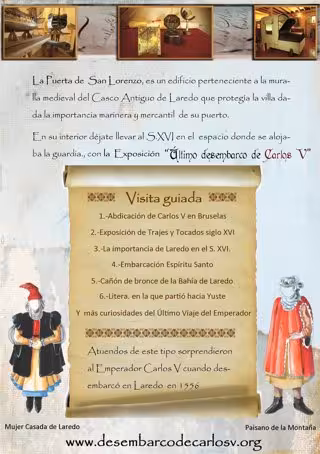 La Puerta de San Lorenzo, es un edificio perteneciente a la mura-
lla medieval del Casco Antiguo de Laredo que protegía la villa da-
da la importancia marinera y mercantil de su puerto.
En su interior déjate llevar al S.XVI en el espacio donde se aloja-
ba la guardia., con la Exposición "Último desembarco de Carlos V"
Visita guiada
1.-Abdicación de Carlos V en Bruselas
2.-Exposición de Trajes y Tocados siglo XVI
3.-La importancia de Laredo en el S. XVI.
4.-Embarcación Espíritu Santo
5.-Cañón de bronce de la Bahía de Laredo
6.-Litera. en la que partió hacia Yuste
Y más curiosidades del Último Viaje del Emperador
Atuendos de este tipo sorprendieron
al Emperador Carlos V cuando des-
embarcó en Laredo en 1556
Mujer Casada de Laredo
Paisano de la Montaña
www.desembarcodecarlosv.org